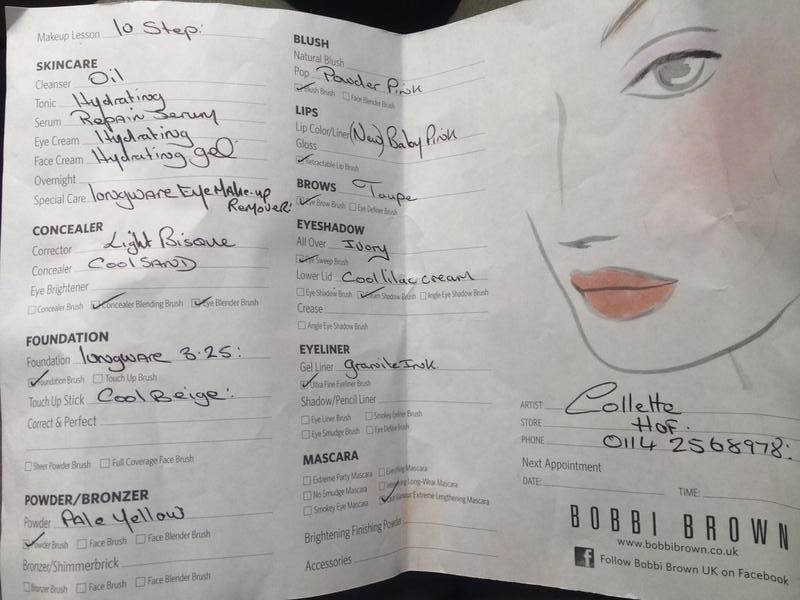 Makeup Lesson 10 Step:
SKINCARE
Cleanser Oil
Tonic Hydrating
Serum Repair Serum
Eye Cream Hydrating
Face Cream Hydrating gel
Overnight
Special Care longware Eye Make-up
Remover:
CONCEALER
Corrector Light Bisque
Concealer Cool SAND
Eye Brightener
Concealer Brush Concealer Blending Brush Eye Blender Brush
FOUNDATION
Foundation longware 3.25:
Foundation Brush Touch Up Brush
Touch Up Stick Cool Beige:
Correct & Perfect
Sheer Powder Brush Full Coverage Face Brush
POWDER/BRONZER
Powder Pale Yellow
Powder Brush Face Brush Face Blender Brush
Bronzer/Shimmerbrick
Bronzer Brush Face Brush Face Blender Brush
BLUSH
Natural Blush
Pop Powder Pink
Blush Brush Face Blender Brush
LIPS
Lip Color/Liner (New) Baby Pink
Gloss
Retractable Lip Brush
BROWS Taupe
Eye Brow Brush Eye Definer Brush
EYESHADOW
All Over Ivory
Eye Sweep Brush
Lower Lid Cool lilac cream
Eye Shadow Brush Cream Shadow Brush Angle Eye Shadow Brush
Crease
Angle Eye Shadow Brush
EYELINER
Gel Liner granite Ink.
Ultra Fine Eyeliner Brush
Shadow/Pencil Liner
Eye Liner Brush Smokey Eyeliner Brush
Eye Smudge Brush Eye Define Brush
MASCARA
Extreme Party Mascara Everything Mascara
No Smudge Mascara Long-Wear Mascara
Smokey Eye Mascara Glamour Extreme Lengthening Mascara
Brightening Finishing Powder
Accessories
ARTIST Collette
STORE HoF.
PHONE 0114 2568978:
Next Appointment
DATE: TIME:
BOBBI BROWN
www.bobbibrown.co.uk
f Follow Bobbi Brown UK on Facebook